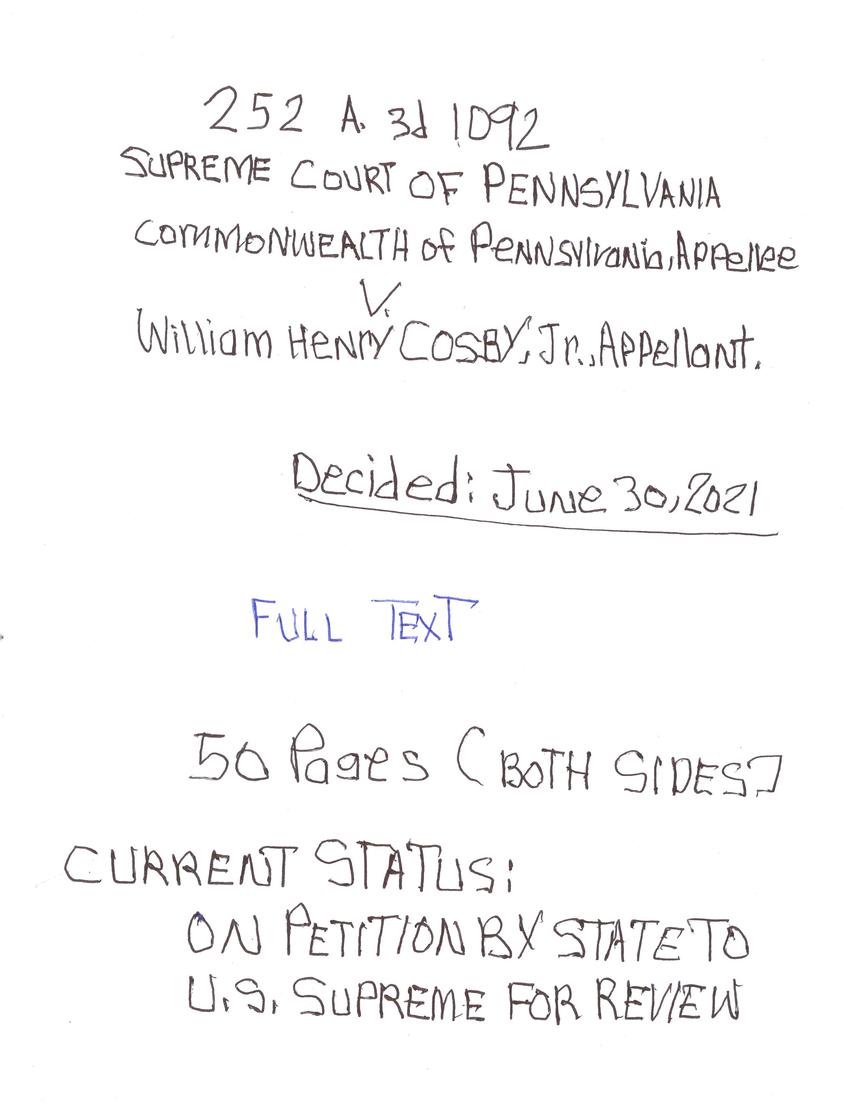 252 A. 3d 1092
SUPREME COURT OF PENNSYLVANIA
COMMONWEALTH of Pennsylvania, Appellee
V.
William Henry COSBY, Jr., Appellant.
Decided: June 30, 2021
FULL TEXT
50 Pages (BOTH SIDES]
CURRENT STATUS:
ON PETITION BY STATE TO
U.S. SUPREME FOR REVIEW